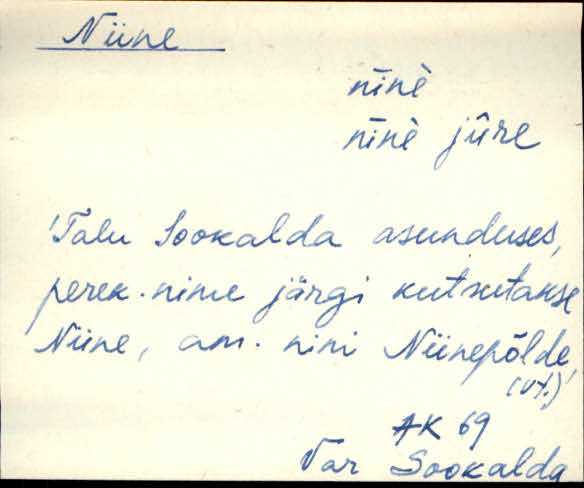 Niine
nīnè
nīnè jûre
'Talu Sookalda asunduses,
perek. nime järgi kutsutakse
Niine, am. nimi Niinepõlde,'
(vt.)
AK 69
Var Sookalda